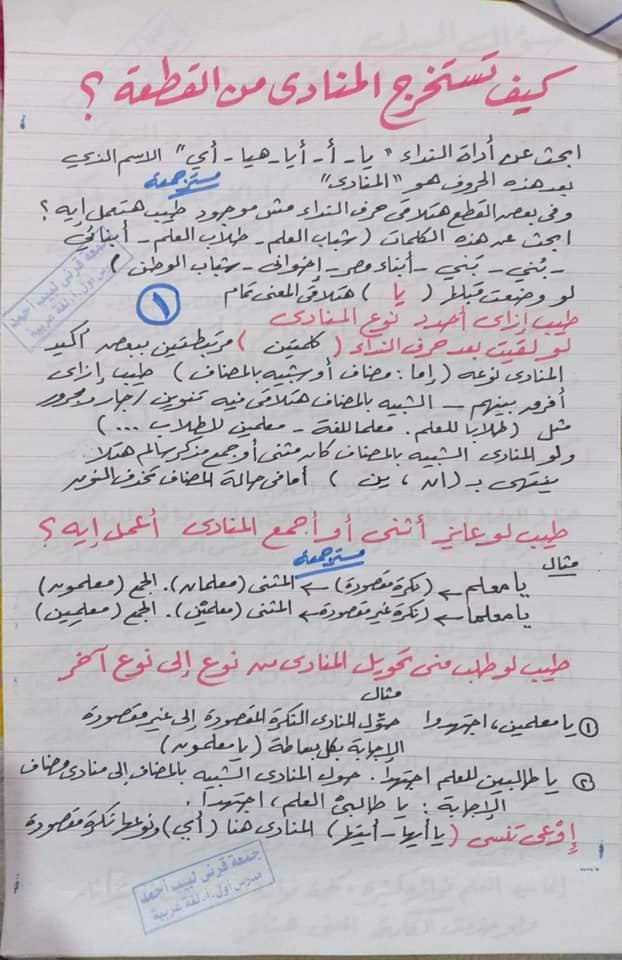 كيف تستخرج المنادى من القطعة ؟
ابحث عن أداة النداء " يا - أ - أيا - هيا - أي " الاسم الذي
بعد هذه الحروف هو " المنادى "
مستر جمعة
وفى بعض القطع هتلاقى حرف النداء مش موجود طيب هتعمل إيه ؟
ابحث عن هذه الكلمات ( شباب العلم - طلاب العلم - أبنائي
- بُني - بَني - أبناء مصر - إخوانى - شباب الوطن )
لو وضعت قبلها ( يا ) هتلاقى المعنى تمام
١
طيب إزاى أحدد نوع المنادى
لو لقيت بعد حرف النداء ( كلمتين ) مرتبطتين ببعض أكيد
المنادى نوعه ( إما : مضاف أو شبيه بالمضاف ) طيب إزاى
أفرق بينهم - الشبيه بالمضاف هتلاقى فيه تنوين / جار ومجرور
مثل ( طلابا للعلم . معلما اللغة - معلمين للطلاب ... )
ولو المنادى الشبيه بالمضاف كان مثنى أو جمع مذكر سالم هتلا
ينتهى بـ ( ان ، ين ) أما فى حالة المضاف تحذف النون
طيب لو عايز أثنى أو أجمع المنادى أعمل إيه ؟
مثال
مستر جمعة
يا معلم ← ( نكرة مقصودة ) ← المثنى ( معلمان ) . الجمع ( معلمون )
يا معلما ← ( نكرة غير مقصودة ← المثنى ( معلمَيْن ) . الجمع ( معلمِين )
طيب لو طلب منى تحويل المنادى من نوع إلى نوع آخر
مثال
١ يا معلمين ، اجتهدوا حوّل المنادى النكرة المقصودة إلى غير مقصودة
الإجابة بكل بساطة ( يا معلمون )
٢ يا طالبين للعلم اجتهدا . حول المنادى الشبيه بالمضاف إلى منادى مضاف
الإجابة : يا طالبىْ العلم ، اجتهدا .
إوْعى تنسى ( يا أيها - أيتها ) المنادى هنا ( أي ) ونوعها نكرة مقصودة
جمعة قرنى لبيب أحمد
مدرس أول أ. لغة عربية
جمعة قرنى لبيب أحمد
مدرس أول أ. لغة عربية